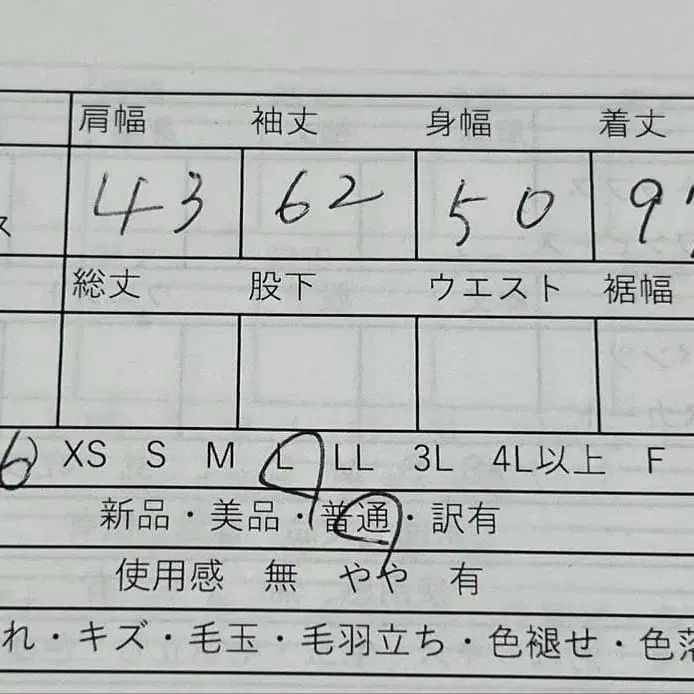 肩幅 袖丈 身幅 着丈
ス 43 62 50 97
総丈 股下 ウエスト 裾幅
6) XS S M L LL 3L 4L以上 F
新品・美品・普通・訳有
使用感 無 やや 有
れ・キズ・毛玉・毛羽立ち・色褪せ・色落